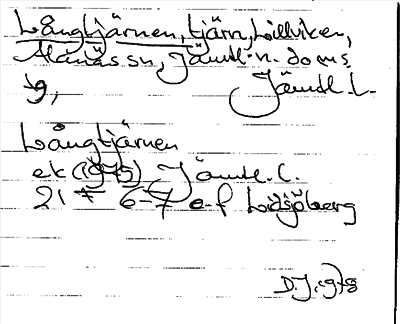 Långtjärnen, tjärn, Lillviken,
Alanäs sn, Jämtl. n. doms.
g, Jämtl. L.
Långtjärnen
ek (1945) Jämtl. L.
21 6-7 e-f Lidsjöberg
D.J. 1978